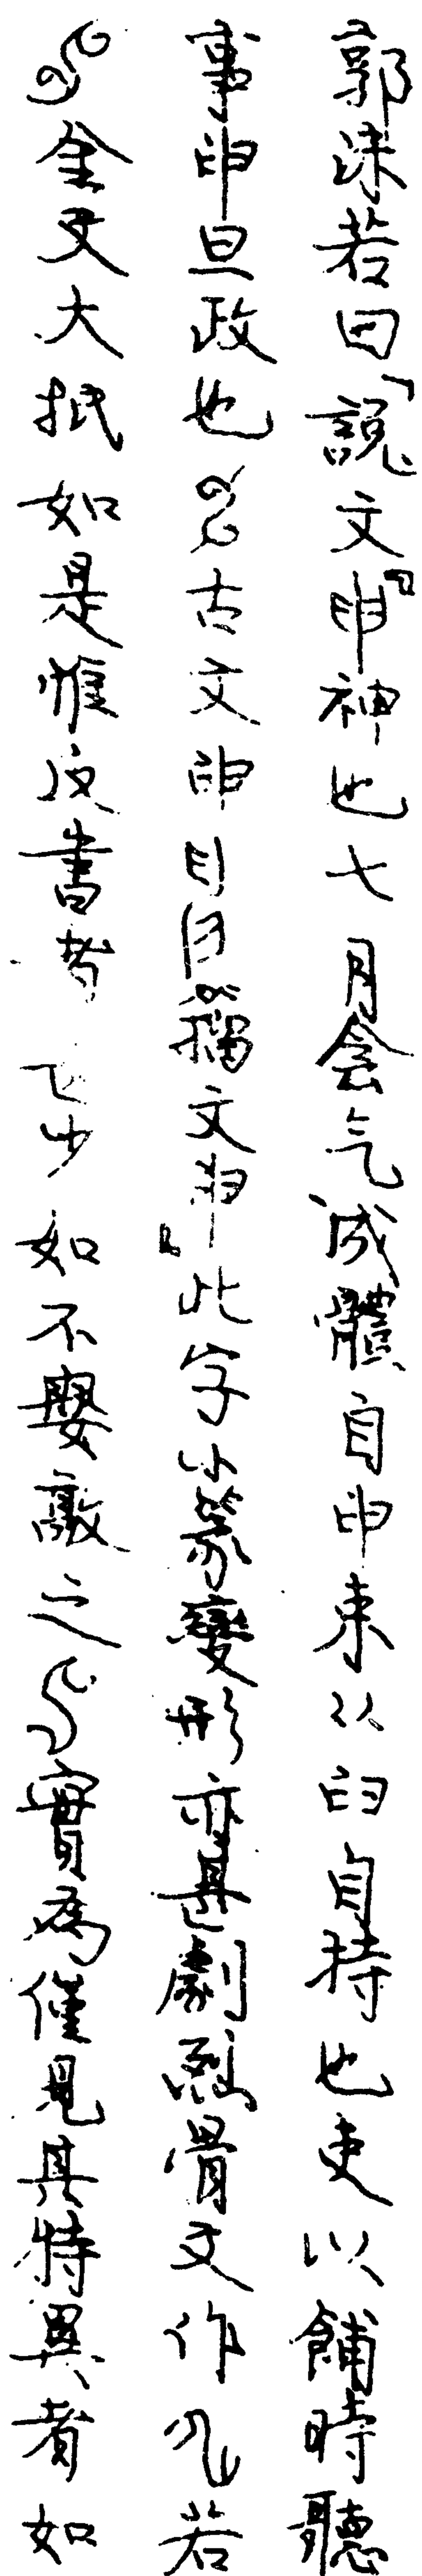 郭沫若曰「說文『申神也七月侌气成體自申束从𦥑自持也吏以餔時聽
事申旦政也古文申𦥔籀文申此字小篆變形亦甚劇烈骨文作若
金文大抵如是惟反書者乜少如不𡢁敦之實為僅見其特異者如